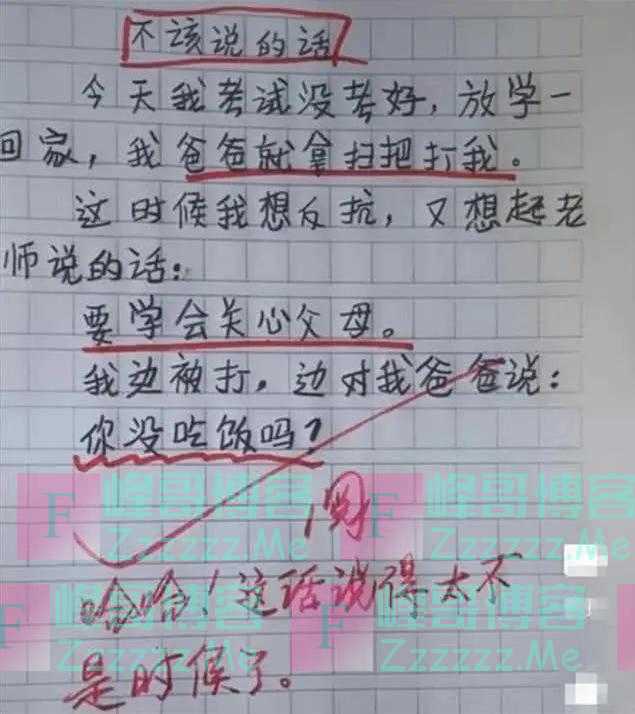 不该说的话
今天我考试没考好,放学一
回家,我爸爸就拿扫把打我。
这时候我想反抗,又想起老
师说的话:
要学会关心父母。
我边被打,边对我爸爸说:
你没吃饭吗?
阅
F 峰哥博客 F 峰哥博客
Zzzzzz.Me Zzzzzz.Me
哈哈!这话说得太不
F 峰哥博客 F 峰哥博客
Zzzzzz.Me Zzzzzz.Me
是时候了。